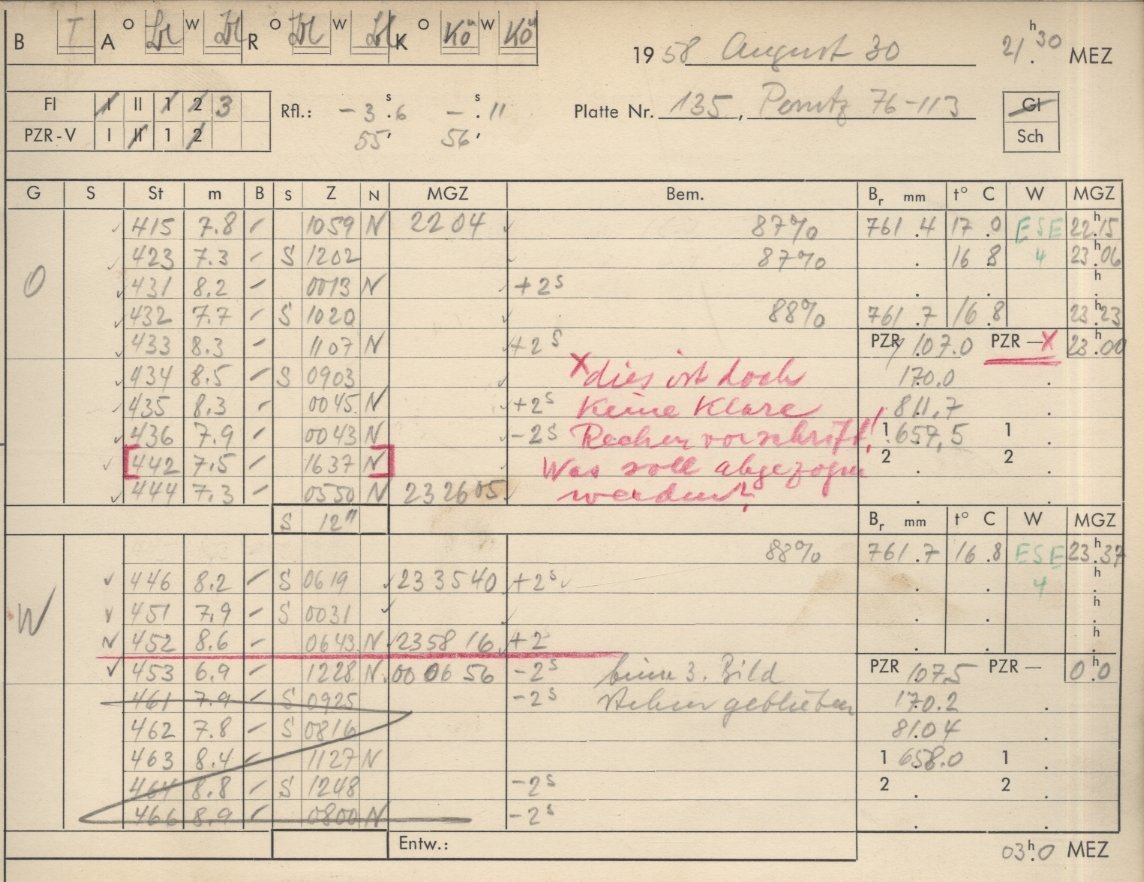 B T A O W R O W K O Kö W Kö 1958 August 30 21h.30 MEZ
Fl I II 1 2 3 Rfl.: -3s.6 -s.11 Platte Nr. 135, 76-113 Gl
PZR-V I II 1 2 55' 56' Sch
G S St m B S Z N MGZ Bem. Br mm t° C W MGZ
415 7.8 1059 N 2204 87% 761.4 17.0 ESE 22h15
O 423 7.3 S 1202 87% 16 8 4 23.06
431 8.2 0013 N +2s h
432 7.7 S 1020 88% 761.7 16.8 23h23
433 8.3 1107 N +2s PZR 107.0 PZR-X 23h00
434 8.5 S 0903 x dies ist doch 170.0
435 8.3 0045 N +2s Keine Klare 811,7
436 7.9 0043 N -2s Rechenvorschrift! 1 657,5 1
[442 7.5 1637 N] Was soll abgezogen 2 2
444 7.3 0550 N 232605 werden?
S 12" Br mm t° C W MGZ
88% 761.7 16.8 ESE 23h37
446 8.2 S 0619 233540 +2s 4 h
W 451 7.9 S 0031 h
452 8.6 0643 N 235816 +2 h
453 6.9 1228 N 000656 -2s beim 3. Bild PZR 107.5 PZR- 0h0
461 7.9 S 0925 -2s stehen geblieben 170.2
462 7.8 S 0816 81.04
463 8.4 1127 N 1 658.0 1
464 8.8 S 1248 -2s 2 2
466 8.9 0800 N -2s
Entw.: 03h.0 MEZ